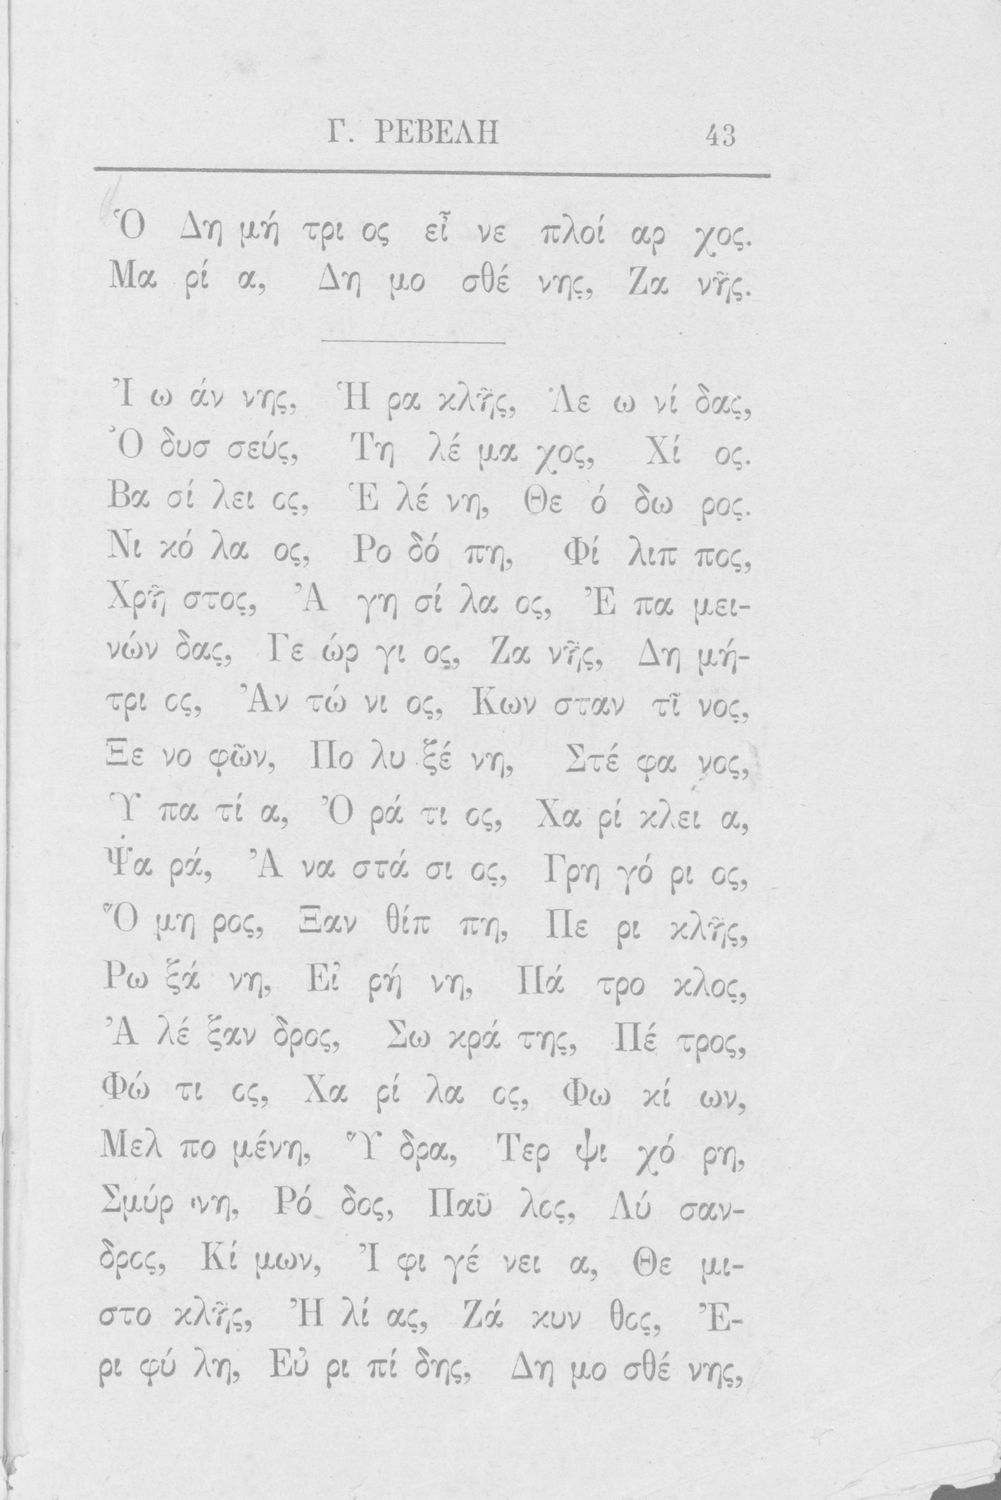 Γ. ΡΕΒΕΛΗ 43
Ὁ Δη μή τρι ος εἶ νε πλοί αρ χος.
Μα ρί α, Δη μο σθέ νης, Ζα νῆς.
Ἰ ω άν νης, Ἡ ρα κλῆς, Λε ω νί δας,
Ὀ δυσ σεύς, Τη λέ μα χος, Χί ος.
Βα σί λει ος, Ἑ λέ νη, Θε ό δω ρος.
Νι κό λα ος, Ρο δό πη, Φί λιπ πος,
Χρῆ στος, Ἀ γη σί λα ος, Ἐ πα μει-
νών δας, Γε ώρ γι ος, Ζα νῆς, Δη μή-
τρι ος, Ἀν τώ νι ος, Κων σταν τῖ νος,
Ξε νο φῶν, Πο λυ ξέ νη, Στέ φα νος,
Ὑ πα τί α, Ὀ ρά τι ος, Χα ρί κλει α,
Ψα ρά, Ἀ να στά σι ος, Γρη γό ρι ος,
Ὅ μη ρος, Ξαν θίπ πη, Πε ρι κλῆς,
Ρω ξά νη, Εἰ ρή νη, Πά τρο κλος,
Ἀ λέ ξαν δρος, Σω κρά της, Πέ τρος,
Φώ τι ος, Χα ρί λα ος, Φω κί ων,
Μελ πο μένη, Ὕ δρα, Τερ ψι χό ρη,
Σμύρ νη, Ρό δος, Παῦ λος, Λύ σαν-
δρος, Κί μων, Ἰ φι γέ νει α, Θε μι-
στο κλῆς, Ἠ λί ας, Ζά κυν θος, Ἐ-
ρι φύ λη, Εὐ ρι πί δης, Δη μο σθέ νης,